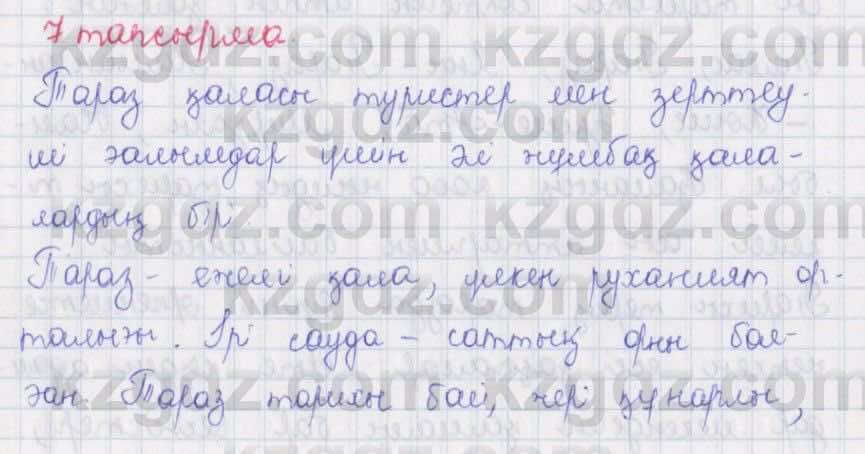 7 тапсырма.
Тараз қаласы туристер мен зерттеу-
ші ғалымдар үшін әлі жұмбақ қала-
лардың бірі.
Тараз - ежелгі қала, үлкен руханият ор-
талығы. Ірі сауда - саттық орны бол-
ған. Тараз тарихы бай, жері құнарлы,
kzgdz.com